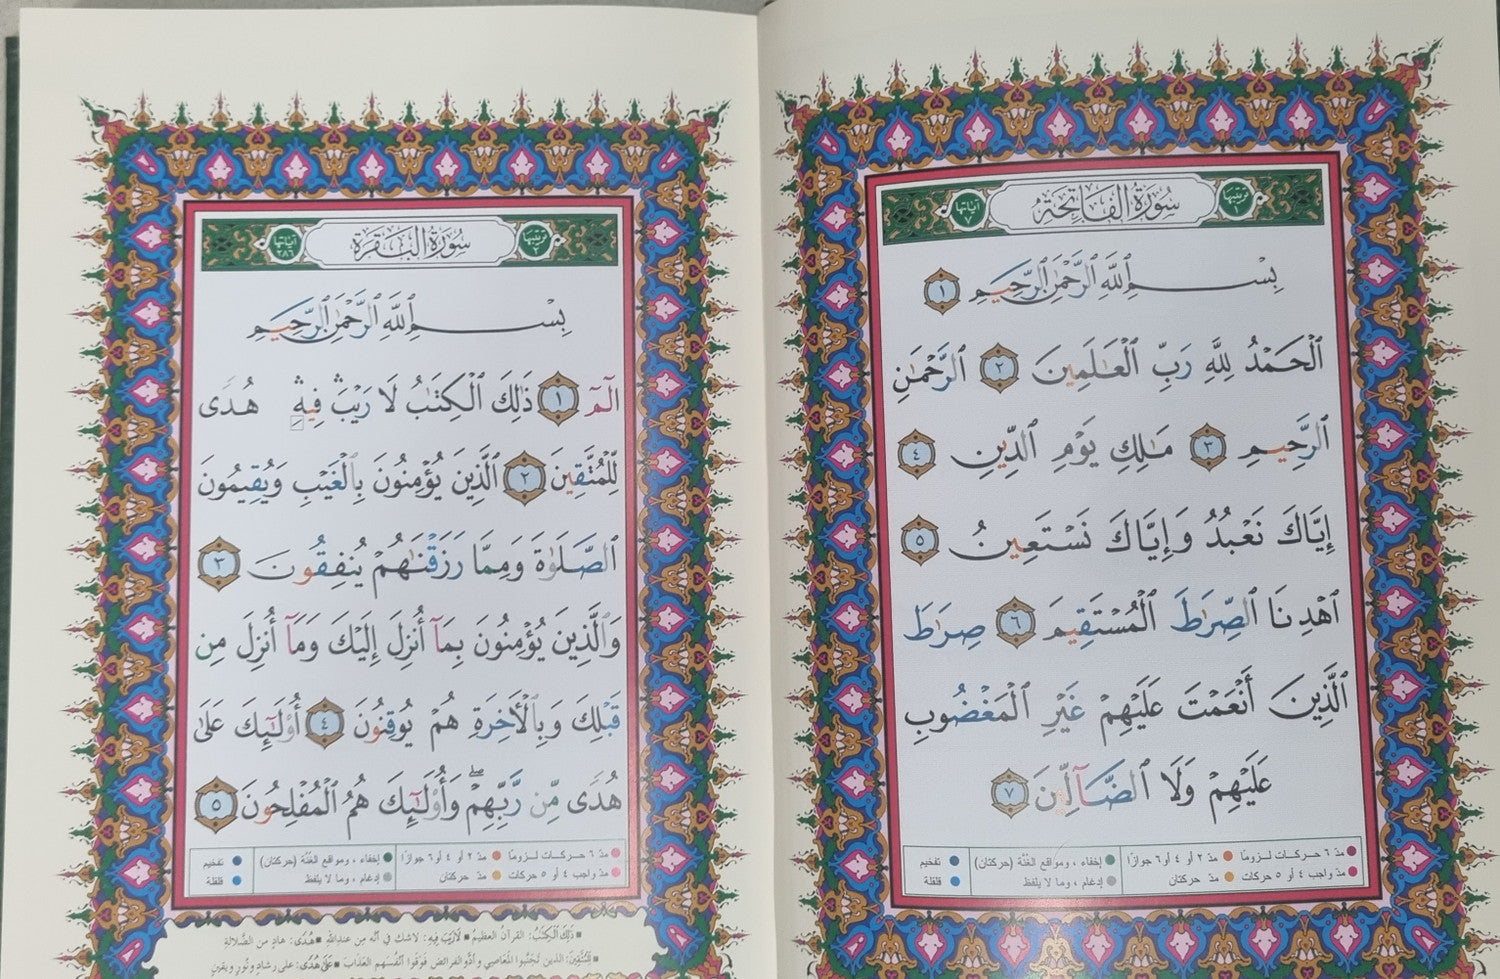 ترتيبها ١ سُورَةُ الفَاتِحَةِ آياتها ٧
بِسْمِ ٱللَّهِ ٱلرَّحْمَٰنِ ٱلرَّحِيمِ ١
ٱلْحَمْدُ لِلَّهِ رَبِّ ٱلْعَٰلَمِينَ ٢ ٱلرَّحْمَٰنِ
ٱلرَّحِيمِ ٣ مَٰلِكِ يَوْمِ ٱلدِّينِ ٤
إِيَّاكَ نَعْبُدُ وَإِيَّاكَ نَسْتَعِينُ ٥
ٱهْدِنَا ٱلصِّرَٰطَ ٱلْمُسْتَقِيمَ ٦ صِرَٰطَ
ٱلَّذِينَ أَنْعَمْتَ عَلَيْهِمْ غَيْرِ ٱلْمَغْضُوبِ
عَلَيْهِمْ وَلَا ٱلضَّآلِّينَ ٧
مدّ ٦ حركات لزومًا مدّ ٢ أو ٤ أو ٦ جوازًا إخفاء ، ومواقع الغنّة (حركتان) تفخيم
مدّ واجب ٤ أو ٥ حركات مدّ حركتان إدغام ، وما لا يلفظ قلقلة
ترتيبها ٢ سُورَةُ البَقَرَةِ آياتها ٢٨٦
بِسْمِ ٱللَّهِ ٱلرَّحْمَٰنِ ٱلرَّحِيمِ
الٓمٓ ١ ذَٰلِكَ ٱلْكِتَٰبُ لَا رَيْبَ ۛ فِيهِ ۛ هُدًى
لِّلْمُتَّقِينَ ٢ ٱلَّذِينَ يُؤْمِنُونَ بِٱلْغَيْبِ وَيُقِيمُونَ
ٱلصَّلَوٰةَ وَمِمَّا رَزَقْنَٰهُمْ يُنفِقُونَ ٣
وَٱلَّذِينَ يُؤْمِنُونَ بِمَآ أُنزِلَ إِلَيْكَ وَمَآ أُنزِلَ مِن
قَبْلِكَ وَبِٱلْءَاخِرَةِ هُمْ يُوقِنُونَ ٤ أُو۟لَٰٓئِكَ عَلَىٰ
هُدًى مِّن رَّبِّهِمْ ۖ وَأُو۟لَٰٓئِكَ هُمُ ٱلْمُفْلِحُونَ ٥
مدّ ٦ حركات لزومًا مدّ ٢ أو ٤ أو ٦ جوازًا إخفاء ، ومواقع الغنّة (حركتان) تفخيم
مدّ واجب ٤ أو ٥ حركات مدّ حركتان إدغام ، وما لا يلفظ قلقلة
■ ذَٰلِكَ ٱلْكِتَٰبُ: القرآن العظيم ■ لَا رَيْبَ فِيهِ: لاشك في أنّه مِن عندالله ■ هُدًى: هادٍ من الضّلالةِ
■ لِّلْمُتَّقِينَ: الذين تَجَنَّبوا المعاصي وأدَّو الفرائضَ فوَقَوا أنْفُسَهم العذَابَ ■ عَلَىٰ هُدًى: على رشادٍ ونُورٍ ويقينٍ